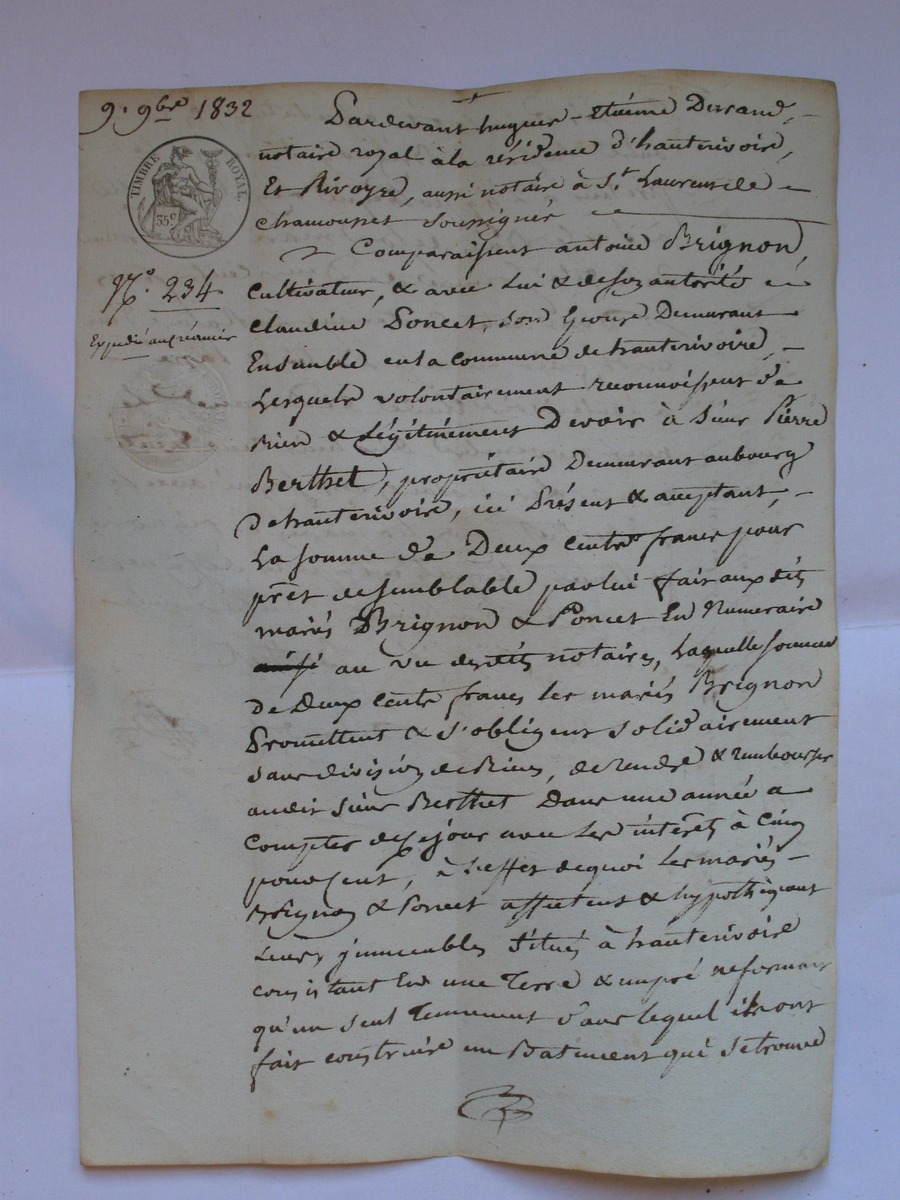 9. 9bre 1832
TIMBRE ROYAL
35c
N°. 234
Expédié au créancier
Pardevant hugues-Etienne Durand,
notaire royal à la résidence d'hauterivoire,
Et Rivoyre, aussi notaire à St. Laurent de
chamousset soussignés
Comparaissent antoine Brignon,
Cultivateur, & avec lui & de son autorité
Claudine Poncet, son Epouse Demeurant
Ensemble en la commune de hauterivoire,
Lesquels volontairement reconnoissent de
bien & légitimement Devoir à sieur Pierre
Berthet, propriétaire Demeurant au bourg
de hauterivoire, ici Présent & acceptant,
La somme de Deux Cents francs pour
prêt de semblable par lui fait aux dits
mariés Brignon & Poncet En Numeraire
au vu desdits notaires, Laquelle somme
de Deux Cents francs les mariés Brignon
Promettent & s'obligent solidairement
sans division de Biens, de rendre & rembourser
audit sieur Berthet Dans une année a
Compter de ce jour avec les intérêts à Cinq
pour cent, à l'effet de quoi les mariés
Brignon & Poncet affectent & hypothéquent
Leurs immeubles situés à hauterivoire
consistant En une Terre & un pré ne formant
qu'un seul Tennement dans lequel ils ont
fait construire un Batiment qui se trouve